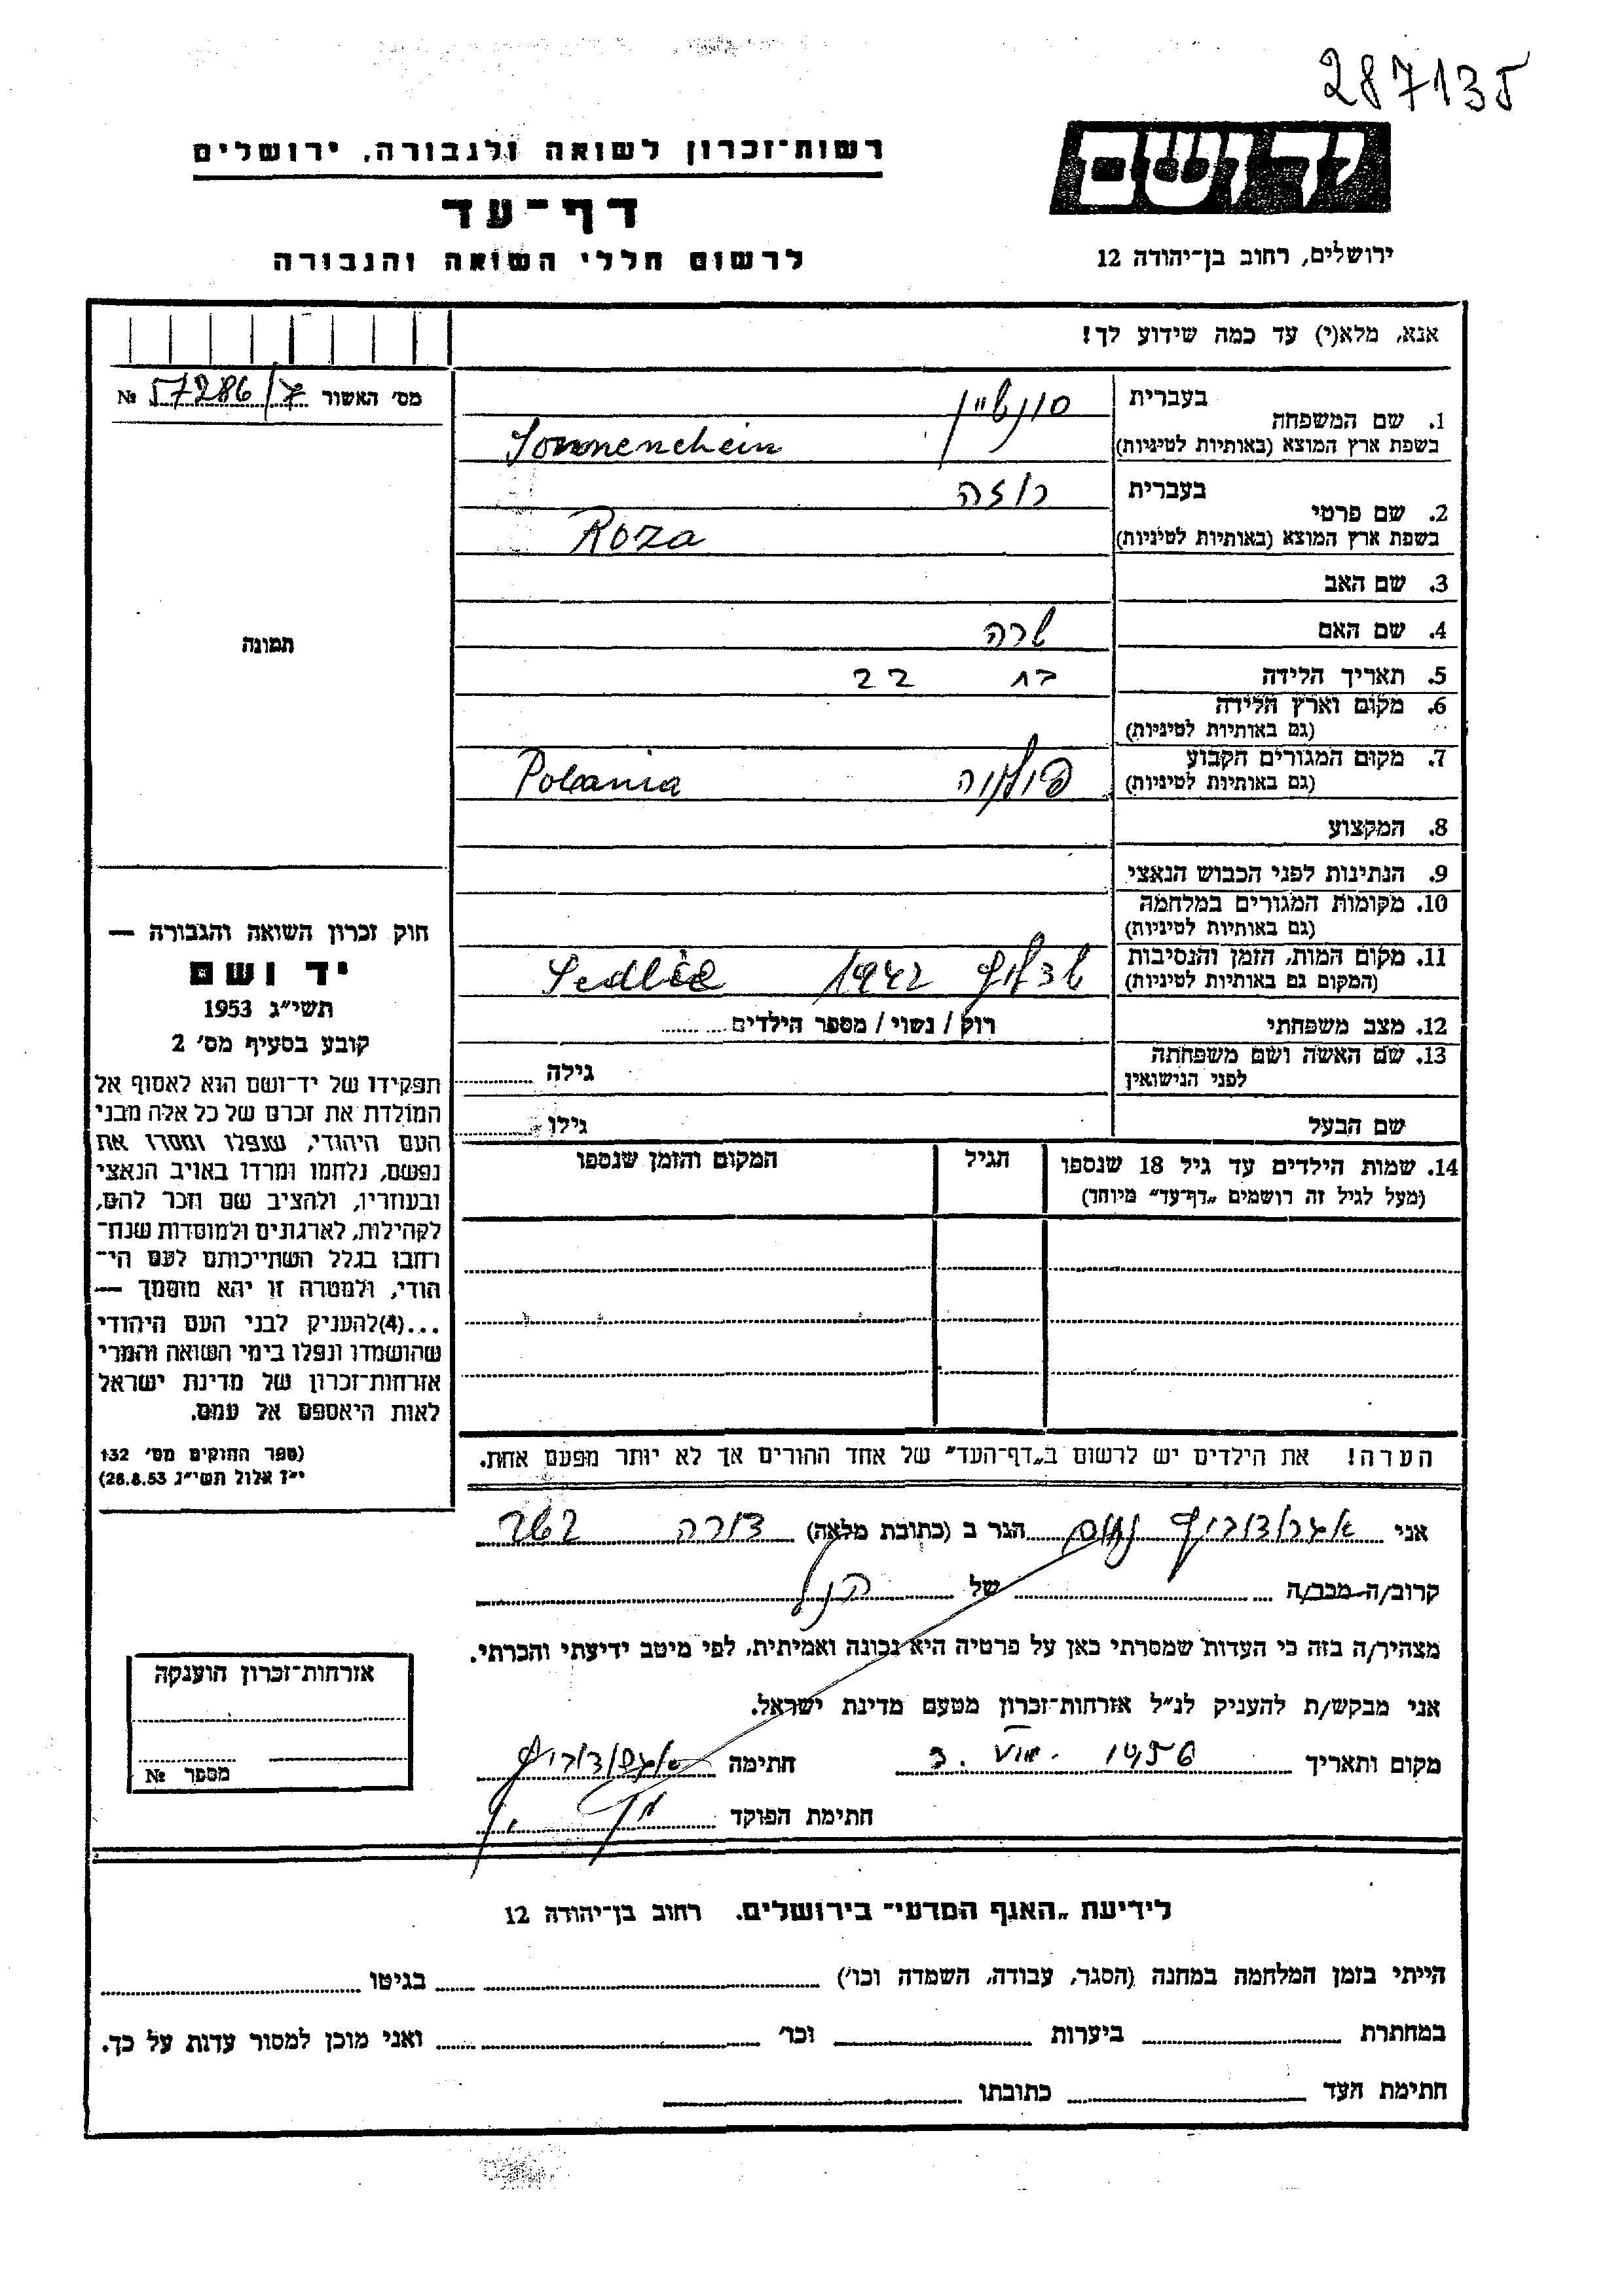 287135
יד ושם
רשות־זכרון לשואה ולגבורה, ירושלים
דף־עד
ירושלים, רחוב בן־יהודה 12
לרשום חללי השואה והגבורה
אנא, מלא(י) עד כמה שידוע לך!
מס׳ האשור № 57286/7
1. שם המשפחה
בעברית
בשפת ארץ המוצא (באותיות לטיניות) Sonnenchein
2. שם פרטי
בעברית רוזה
בשפת ארץ המוצא (באותיות לטיניות) Roza
3. שם האב
4. שם האם שרה
תמונה
5. תאריך הלידה בת 22
6. מקום וארץ הלידה
(גם באותיות לטיניות)
7. מקום המגורים הקבוע
(גם באותיות לטיניות) פולניה Polania
8. המקצוע
9. הנתינות לפני הכבוש הנאצי
10. מקומות המגורים במלחמה
(גם באותיות לטיניות)
11. מקום המות, הזמן והנסיבות
(המקום גם באותיות לטיניות) 1942
12. מצב משפחתי רוק / נשוי / מספר הילדים
13. שם האשה ושם משפחתה
לפני הנישואין גילה
שם הבעל גילו
14. שמות הילדים עד גיל 18 שנספו
(מעל לגיל זה רושמים „דף־עד״ מיוחד)
הגיל
המקום והזמן שנספו
חוק זכרון השואה והגבורה —
יד ושם
תשי״ג 1953
קובע בסעיף מס׳ 2
תפקידו של יד־ושם הוא לאסוף אל
המולדת את זכרם של כל אלה מבני
העם היהודי, שנפלו ומסרו את
נפשם, נלחמו ומרדו באויב הנאצי
ובעוזריו, ולהציב שם וזכר להם,
לקהילות, לארגונים ולמוסדות שנח־
רחבו בגלל השתייכותם לעם הי־
הודי, ולמטרה זו יהא מוסמך —
...(4)להעניק לבני העם היהודי
שהושמדו ונפלו בימי השואה והמרי
אזרחות־זכרון של מדינת ישראל
לאות היאספם אל עמם.
(ספר החוקים מס׳ 132
י״ז אלול תשי״ג 28.8.53)
הערה! את הילדים יש לרשום ב„דף־העד״ של אחד ההורים אך לא יותר מפעם אחת.
אני נחום הגר ב (כתובת מלאה)
קרוב/ה מכר/ה של
מצהיר/ה בזה כי העדות שמסרתי כאן על פרטיה היא נכונה ואמיתית, לפי מיטב ידיעתי והכרתי.
אני מבקש/ת להעניק לנ״ל אזרחות־זכרון מטעם מדינת ישראל.
מקום ותאריך 3. VIII. 1956 חתימה
חתימת הפוקד
אזרחות־זכרון הוענקה
מספר №
לידיעת „האגף המדעי״ בירושלים. רחוב בן־יהודה 12
הייתי בזמן המלחמה במחנה (הסגר, עבודה, השמדה וכו׳) בגיטו
במחתרת ביערות וכו׳ ואני מוכן למסור עדות על כך.
חתימת העד כתובתו